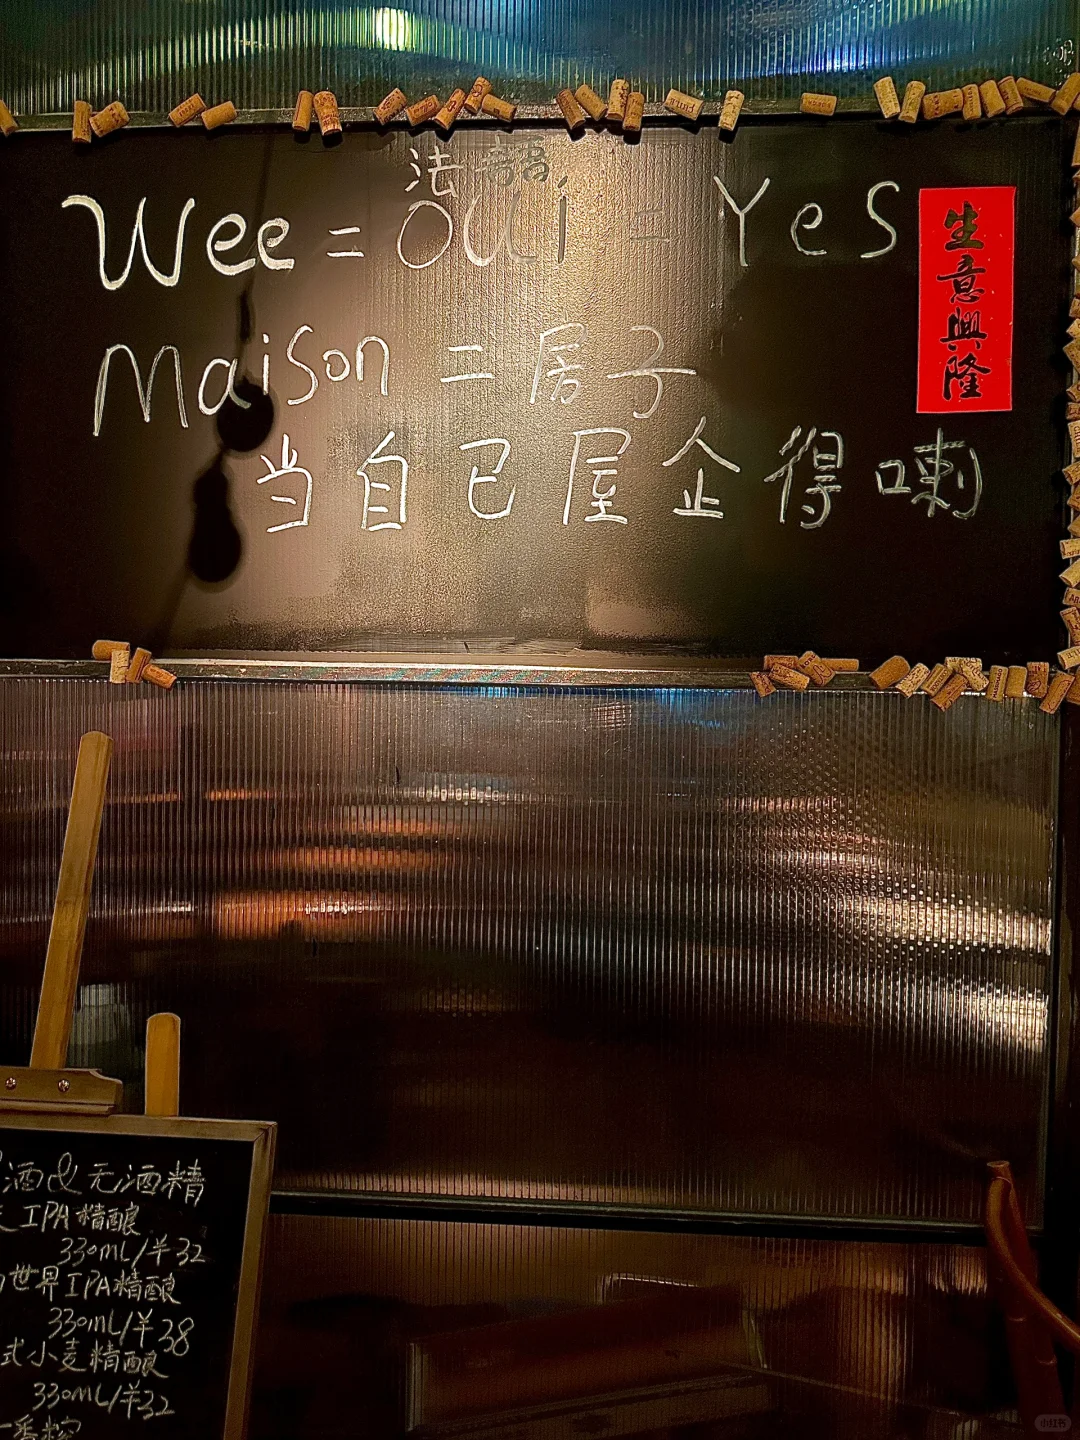 法語
Wee = oui = Yes
Maison = 房子
当自已屋企得喇
生意興隆
酒& 无酒精
IPA精酿
330mL/羊32
世界IPA精酿
330mL/羊38
式小麦精酿
330mL/羊32
一番榨
小红书